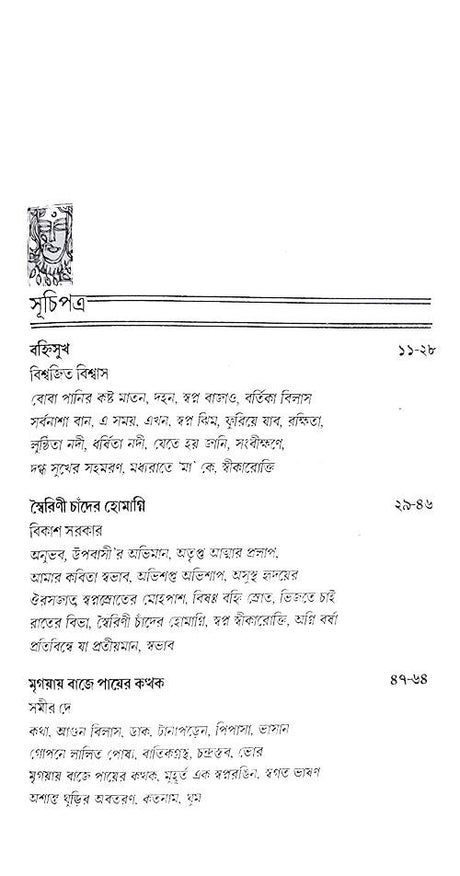 সূচিপত্র
বহ্নিসুখ ১১-২৮
বিশ্বজিত বিশ্বাস
বোবা পানির কষ্ট মাতন, দহন, স্বপ্ন বাজাও, বর্তিকা বিলাস
সর্বনাশা বান, এ সময়, এখন, স্বপ্ন ঝিম, ফুরিয়ে যাব, রক্ষিতা,
লুণ্ঠিতা নদী, ধর্ষিতা নদী, যেতে হয় জানি, সংবীক্ষণে,
দগ্ধ সুখের সহমরণ, মধ্যরাতে 'মা' কে, স্বীকারোক্তি
স্বৈরিণী চাঁদের হোমাগ্নি ২৯-৪৬
বিকাশ সরকার
অনুভব, উপবাসী'র অভিমান, অতৃপ্ত আত্মার প্রলাপ,
আমার কবিতা স্বভাব, অভিশপ্ত অভিশাপ, অসুস্থ হৃদয়ের
ঔরসজাত, স্বপ্নস্রোতের মোহপাশ, বিষণ্ণ বহ্নি স্রোত, ভিজতে চাই
রাতের বিভা, স্বৈরিণী চাঁদের হোমাগ্নি, স্বপ্ন স্বীকারোক্তি, অগ্নি বর্ষা
প্রতিবিম্বে যা প্রতীয়মান, স্বভাব
মৃগয়ায় বাজে পায়ের কত্থক ৪৭-৬৪
সমীর দে
কথা, আগুন বিলাস, ডাক, টানাপড়েন, পিপাসা, ভাসান
গোপনে লালিত পোষ্য, বাতিকগ্রস্থ, চন্দ্রস্তব, ভোর
মৃগয়ায় বাজে পায়ের কত্থক, মুহূর্ত এক স্বপ্নরঙিন, স্বগত ভাষণ
অশান্ত ঘুড়ির অবতরণ, কতনাম, ঘুম